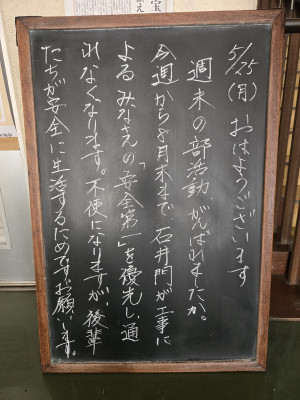 5/25（月）おはようございます
週末の部活動、がんばれましたか。
今週から8月末まで、石井門が工事に
よる みなさんの「安全第一」を優先し、通
れなくなります。不便になりますが、後輩
たちが安全に生活するためです。お願いします。